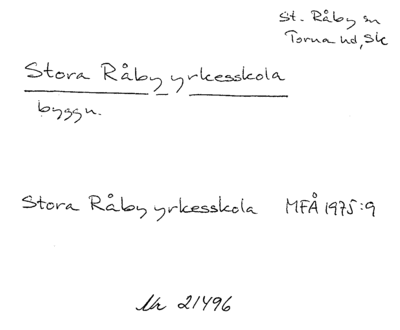 St. Råby sn
Torna hd, Sk
Stora Råby yrkesskola
byggn.
Stora Råby yrkesskola MFÅ 1975:9
21496